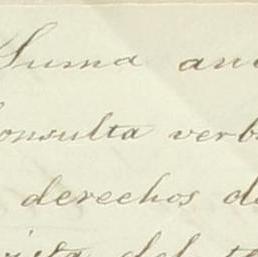 Suma an
consulta verb
derechos de
vista del te